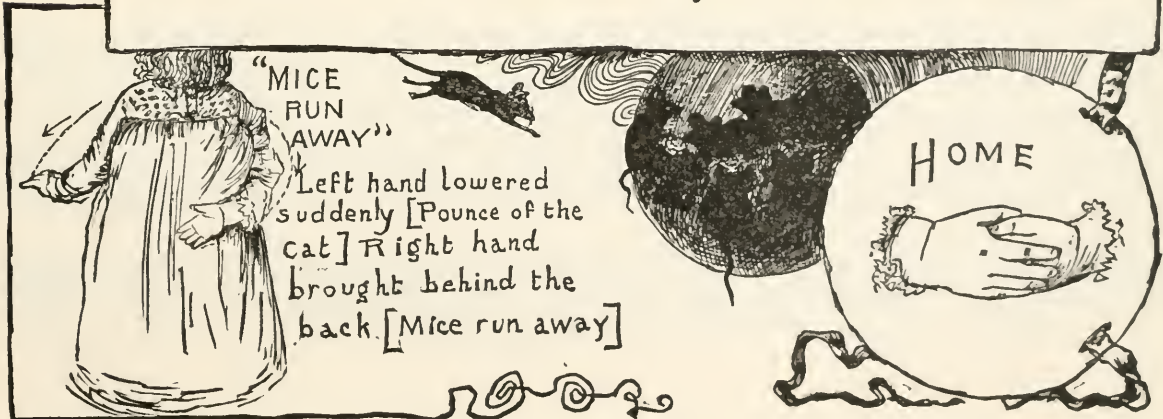 "MICE
RUN
AWAY"
Left hand lowered
suddenly [Pounce of the
cat] Right hand
brought behind the
back. [Mice run away]
HOME